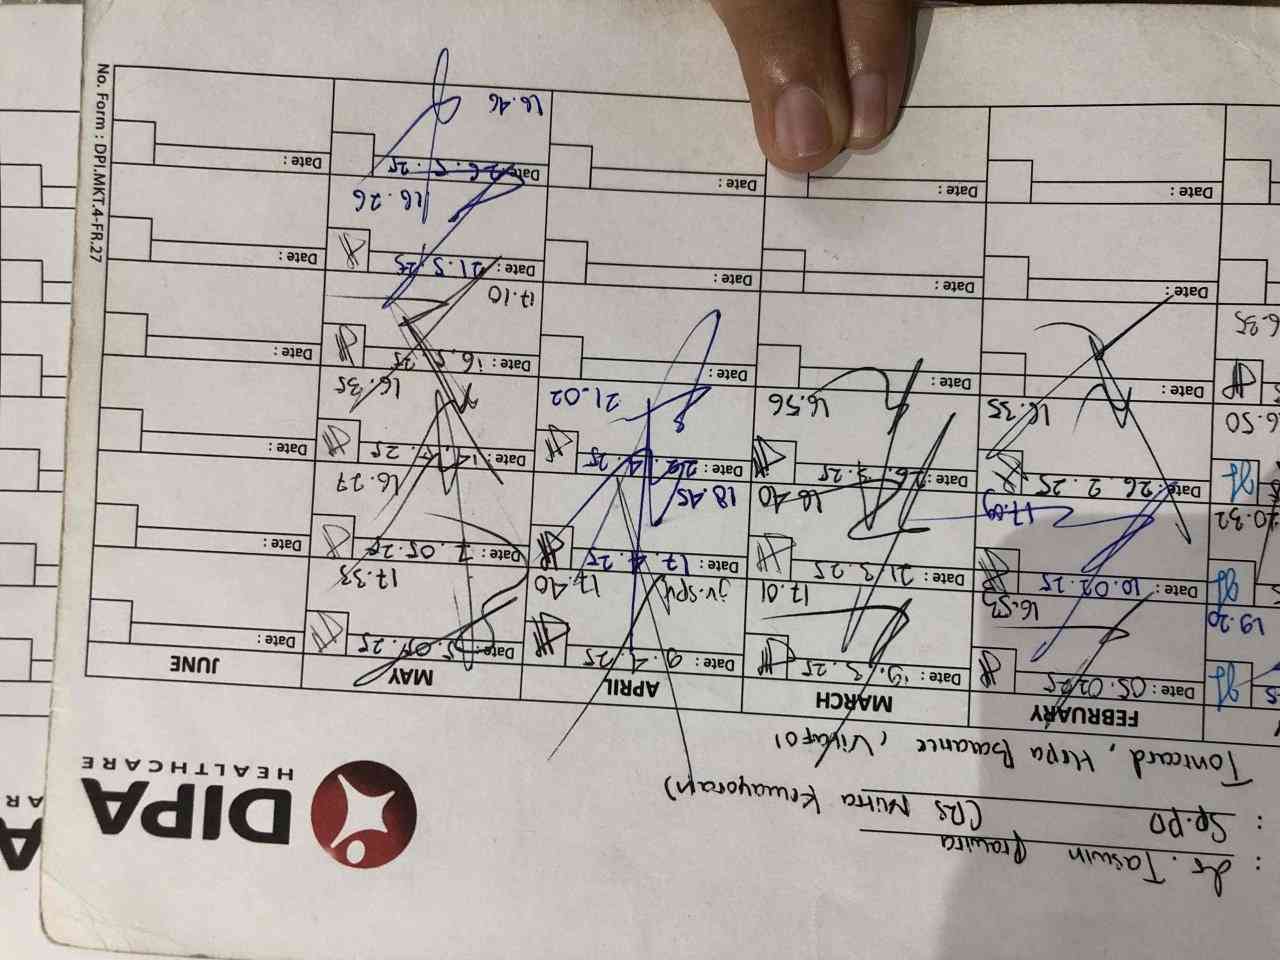 DIPA
HEALTHCARE
: dr. Taswin Prawira
: Sp.PD (RS Mitra Kemayoran)
Tonicard, Hepa Balance, Vitafol
FEBRUARY MARCH APRIL MAY JUNE
Date: 05.02.25 Date: 19.3.25 Date: 9.4.25 Date: 5.05.25 Date:
19.20 16.53 17.01 jv.spv 17.40 17.33
Date: 10.02.25 Date: 21.3.25 Date: 17.4.25 Date: 7.05.25 Date:
20.32 17.09 16.40 18.45 16.27
Date: 26.2.25 Date: 26.3.25 Date: 29.4.25 Date: 14.5.25 Date:
16.50 16.35 16.56 21.02 16.35
Date: Date: Date: Date: 16.5.25 Date:
16.35 17.10
Date: Date: Date: Date: 21.5.25 Date:
16.26
Date: Date: Date: Date: 26.5.25 Date:
16.46
No. Form : DPI.MKT.4-FR.27